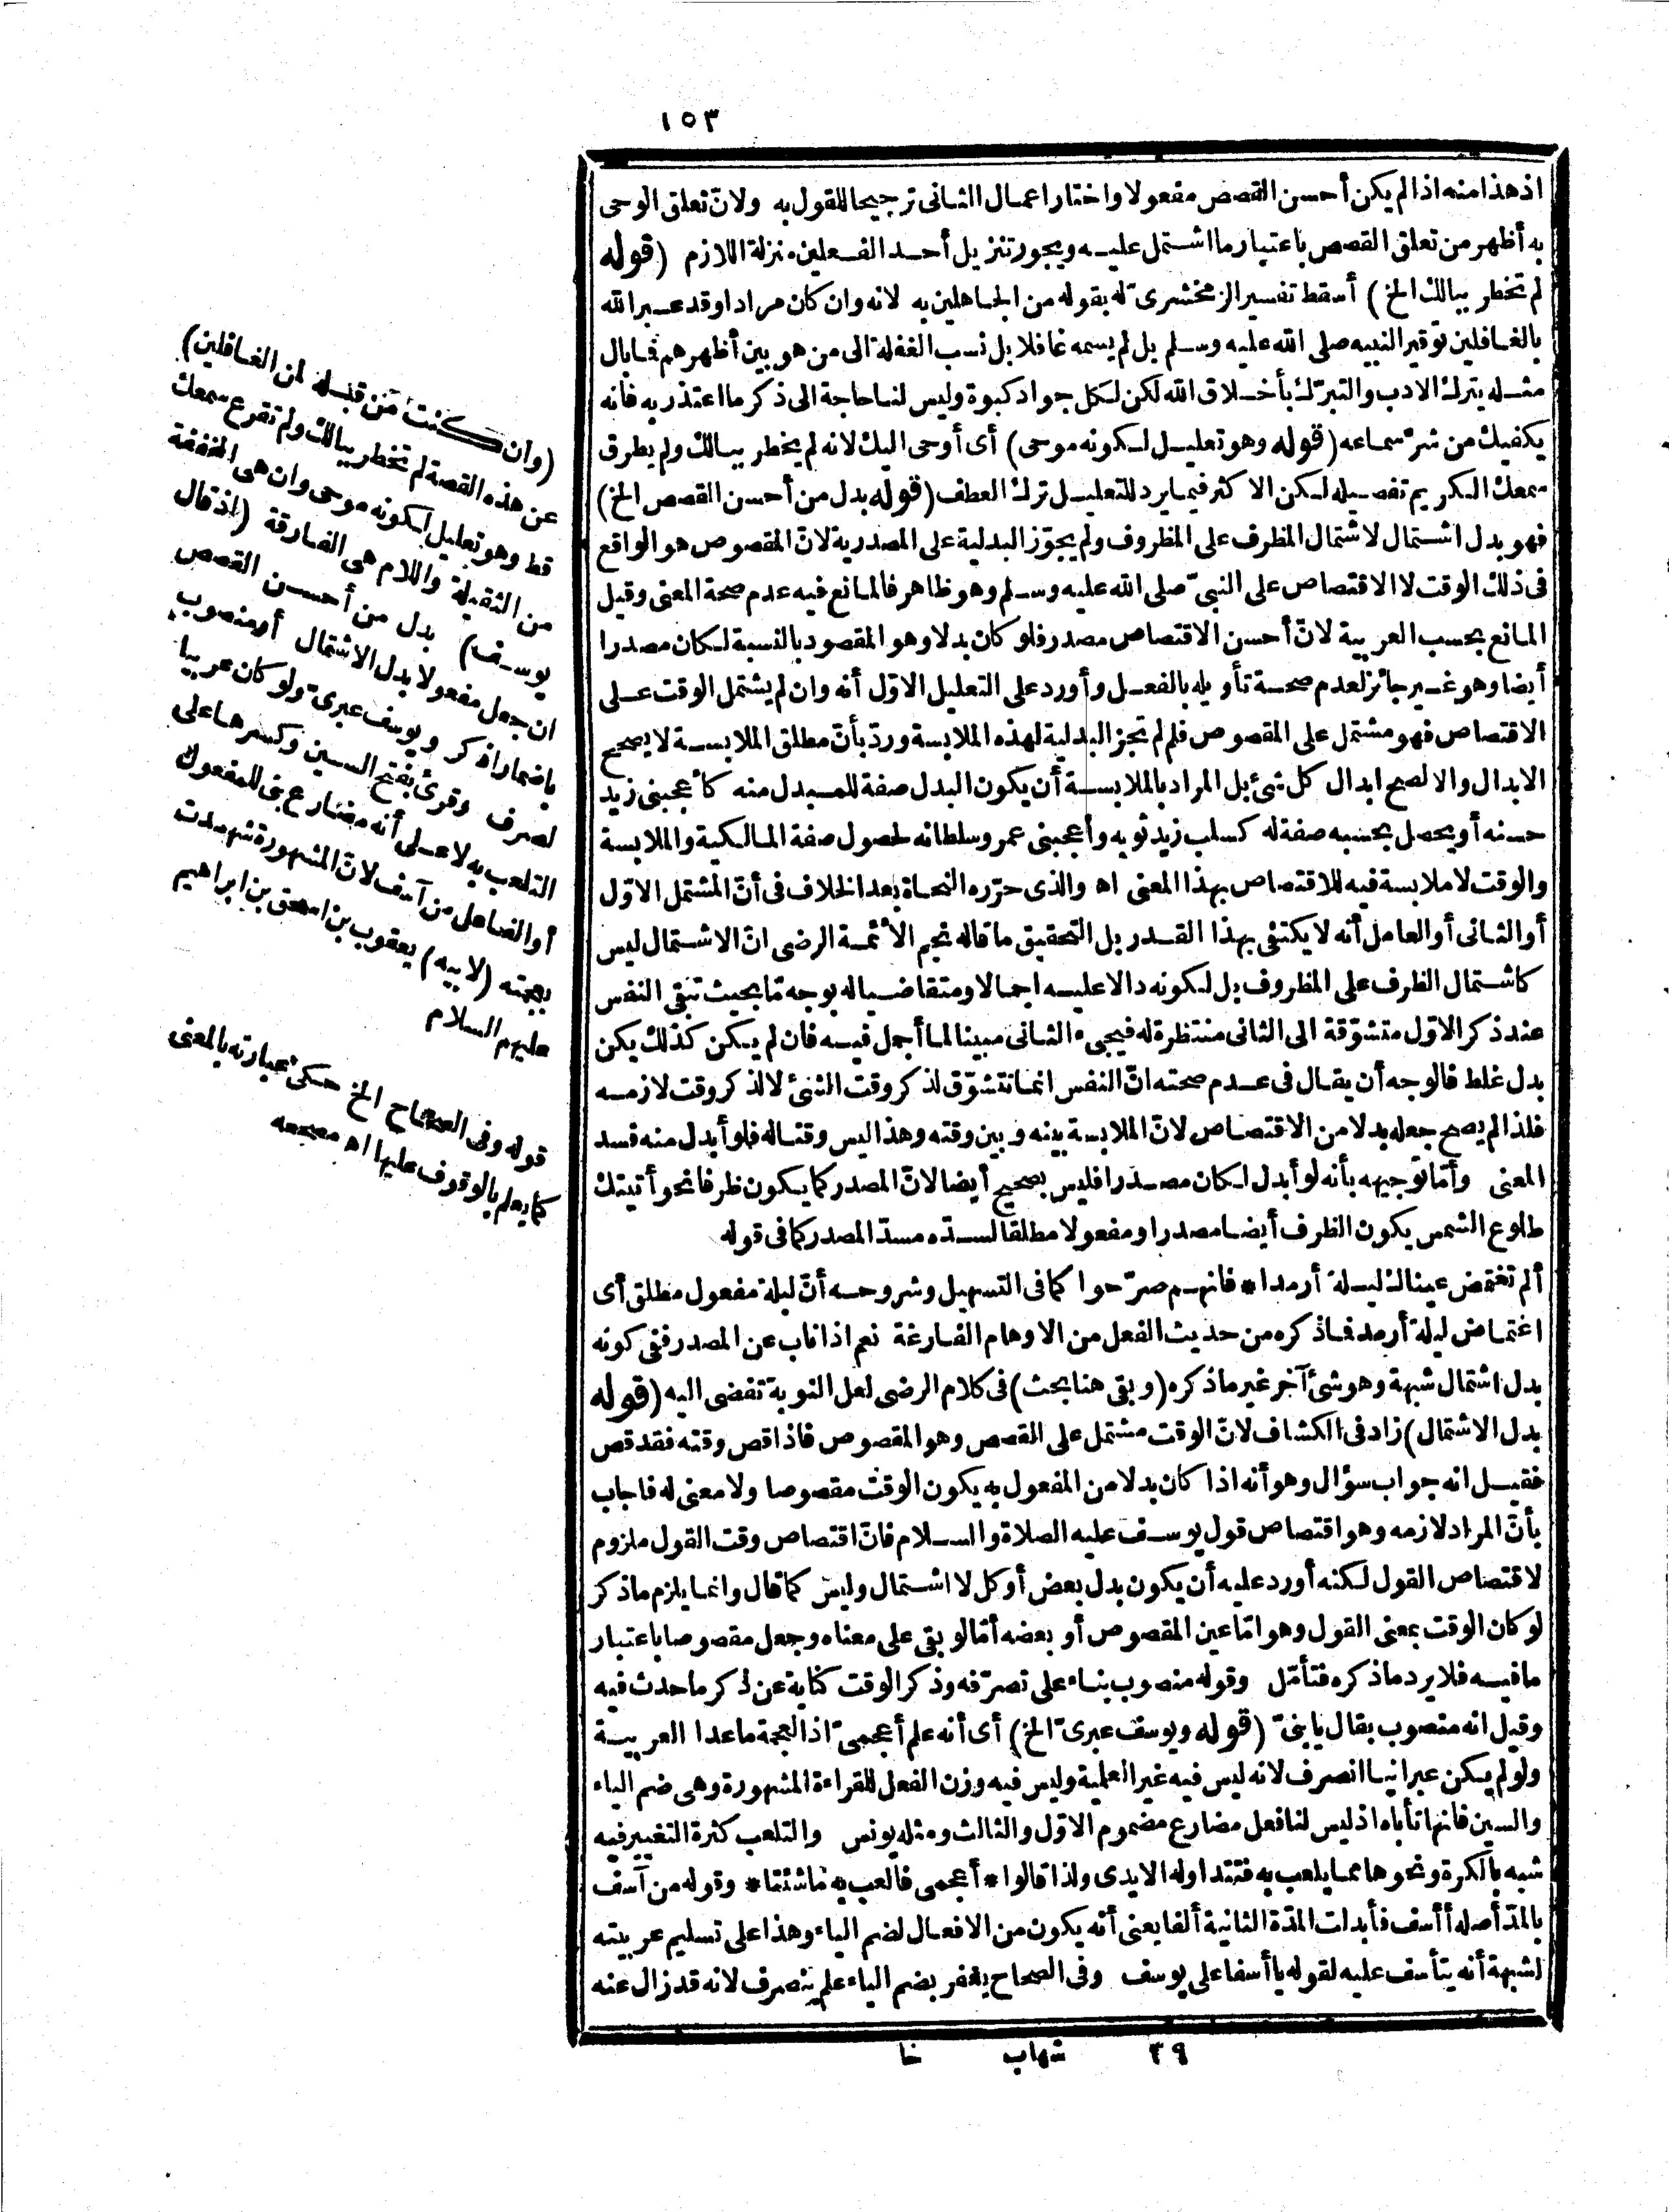 ١٥٣
اذ هذا منه اذا لم يكن أحسن القصص مفعولا واختار اعمال الثانى ترجيحا للقول به ولانّ تعلق الوحى
به أظهر من تعلق القصص باعتبار ما اشتمل عليه ويجوز تنزيل أحد الفعلين منزلة اللازم (قوله
لم تخطر ببالك الخ) أسقط تفسير الزمخشرىّ له بقوله من الجاهلين به لانه وان كان مرادا وقد عبر الله
بالغافلين توقيرا لنبيه صلى الله عليه وسلم بل لم يسمه غافلا بل نسب الغفلة الى من هو بين أظهرهم فما بال
مثله يترك الادب والتبرّك بأخلاق الله لكن لكل جواد كبوة وليس لنا حاجة الى ذكر ما اعتذر به فانه
يكفيك من شرّ سماعه (قوله وهو تعليل لكونه موحى) أى أوحى اليك لانه لم يخطر ببالك ولم يطرق
سمعك الكريم تفصيله لكن الاكثر فيما يرد للتعليل ترك العطف (قوله بدل من أحسن القصص الخ)
فهو بدل اشتمال لاشتمال الظرف على المظروف ولم يجوّز البدلية على المصدرية لانّ المقصوص هو الواقع
فى ذلك الوقت لا الاقتصاص على النبىّ صلى الله عليه وسلم وهو ظاهر فالمانع فيه عدم صحة المعنى وقيل
المانع بحسب العربية لانّ أحسن الاقتصاص مصدر فلو كان بدلا وهو المقصود بالنسبة لكان مصدرا
أيضا وهو غير جائز لعدم صحة تأويله بالفعل وأورد على التعليل الاوّل أنه وان لم يشتمل الوقت على
الاقتصاص فهو مشتمل على المقصوص فلم لم تجز البدلية لهذه الملابسة وردّ بأنّ مطلق الملابسة لا يصحح
الابدال والا لصح ابدال كل شئ بل المراد بالملابسة أن يكون البدل صفة للمبدل منه كأعجبنى زيد
حسنه أو يحصل بحسبه صفة له كسلب زيد ثوبه وأعجبنى عمرو سلطانه لحصول صفة المالكية والملابسة
والوقت لا ملابسة فيه للاقتصاص بهذا المعنى اه والذى حرّره النحاة بعد الخلاف فى أنّ المشتمل الاوّل
أو الثانى أو العامل أنه لا يكتفى بهذا القدر بل التحقيق ما قاله نجم الأئمة الرضى انّ الاشتمال ليس
كاشتمال الظرف على المظروف بل لكونه دالا عليه اجمالا ومتقاضيا له بوجه مّا بحيث تبقى النفس
عند ذكر الاوّل متشوّقة الى الثانى منتظرة له فيجىء الثانى مبينا لما أجمل فيه فان لم يكن كذلك يكن
بدل غلط فالوجه أن يقال فى عدم صحته انّ النفس انما تتشوّق لذكر وقت الشئ لا لذكر وقت لازمه
فلذا لم يصح جعله بدلا من الاقتصاص لانّ الملابسة بينه وبين وقته وهذا ليس وقتا له فلو أبدل منه فسد
المعنى وأمّا توجيهه بأنه لو أبدل لكان مصدرا فليس بصحيح أيضا لانّ المصدر كما يكون ظرفا نحو أتيتك
طلوع الشمس يكون الظرف أيضا مصدرا ومفعولا مطلقا لسدّه مسدّ المصدر كما فى قوله
ألم تغتمض عيناك ليلة أرمدا * فانهم صرّحوا كما فى التسهيل وشروحه أنّ ليلة مفعول مطلق أى
اغتماض ليلة أرمد فما ذكره من حديث الفعل من الاوهام الفارغة نعم اذا ناب عن المصدر ففى كونه
بدل اشتمال شبهة وهو شئ آخر غير ما ذكره (وبقى هنا بحث) فى كلام الرضى لعل النوبة تفضى اليه (قوله
بدل الاشتمال) زاد فى الكشاف لانّ الوقت مشتمل على القصص وهو المقصوص فاذا قص وقته فقد قص
فقيل انه جواب سؤال وهو أنه اذا كان بدلا من المفعول به يكون الوقت مقصوصا ولا معنى له فاجاب
بأنّ المراد لازمه وهو اقتصاص قول يوسف عليه الصلاة والسلام فانّ اقتصاص وقت القول ملزوم
لاقتصاص القول لكنه أورد عليه أن يكون بدل بعض أو كل لا اشتمال وليس كما قال وانما يلزم ما ذكر
لو كان الوقت بمعنى القول وهو امّا عين المقصوص أو بعضه أمّا لو بقى على معناه وجعل مقصوصا باعتبار
ما فيه فلا يرد ما ذكره فتأمّل وقوله منصوب بناء على تصرّفه وذكر الوقت كناية عن ذكر ما حدث فيه
وقيل انه منصوب بقال يا بنىّ (قوله ويوسف عبرىّ الخ) أى أنه علم أعجمىّ اذ العجمة ما عدا العربية
ولو لم يكن عبرانيا انصرف لانه ليس فيه غير العلمية وليس فيه وزن الفعل للقراءة المشهورة وهى ضم الياء
والسين فانها تأباه اذ ليس لنا فعل مضارع مضموم الاوّل والثالث ومثله يونس والتلعب كثرة التغيير فيه
شبه بالكرة ونحوها مما يلعب به فتتداوله الايدى ولذا قالوا * أعجمى فالعب به ما شئتا * وقوله من آسف
بالمدّ أصله أأسف فأبدلت المدّة الثانية ألفا يعنى أنه يكون من الافعال لضم الياء وهذا على تسليم عربيته
لشبهة أنه يتأسف عليه لقوله يا أسفا على يوسف وفى الصحاح يعفر بضم الياء علم ينصرف لانه قد زال عنه
٣٩ شهاب خا
(وان كنت من قبله لمن الغافلين)
عن هذه القصة لم تخطر ببالك ولم تقرع سمعك
قط وهو تعليل لكونه موحى وان هى المخففة
من الثقيلة واللام هى الفارقة (اذ قال
يوسف) بدل من أحسن القصص
ان جعل مفعولا بدل الاشتمال أو منصوب
باضمار اذكر ويوسف عبرىّ ولو كان عربيا
لصرف وقرئ بفتح السين وكسرها على
التلعب به لا على أنه مضارع بنى للمفعول
أو الفاعل من آسف لانّ المشهورة شهدت
بعجمته (لابيه) يعقوب بن اسحق بن ابراهيم
عليهم السلام
قوله وفى الصحاح الخ حكى عبارته بالمعنى
كما يعلم بالوقوف عليها اه مصححه